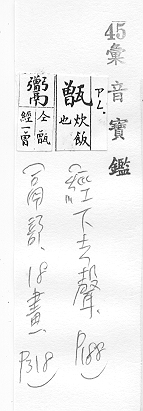 45彙音寶鑑
ㄗㄥ.
甑 炊飯也
鬻 仝甑 經二曾
(經下去聲.P188)
(鬲部18畫P318)